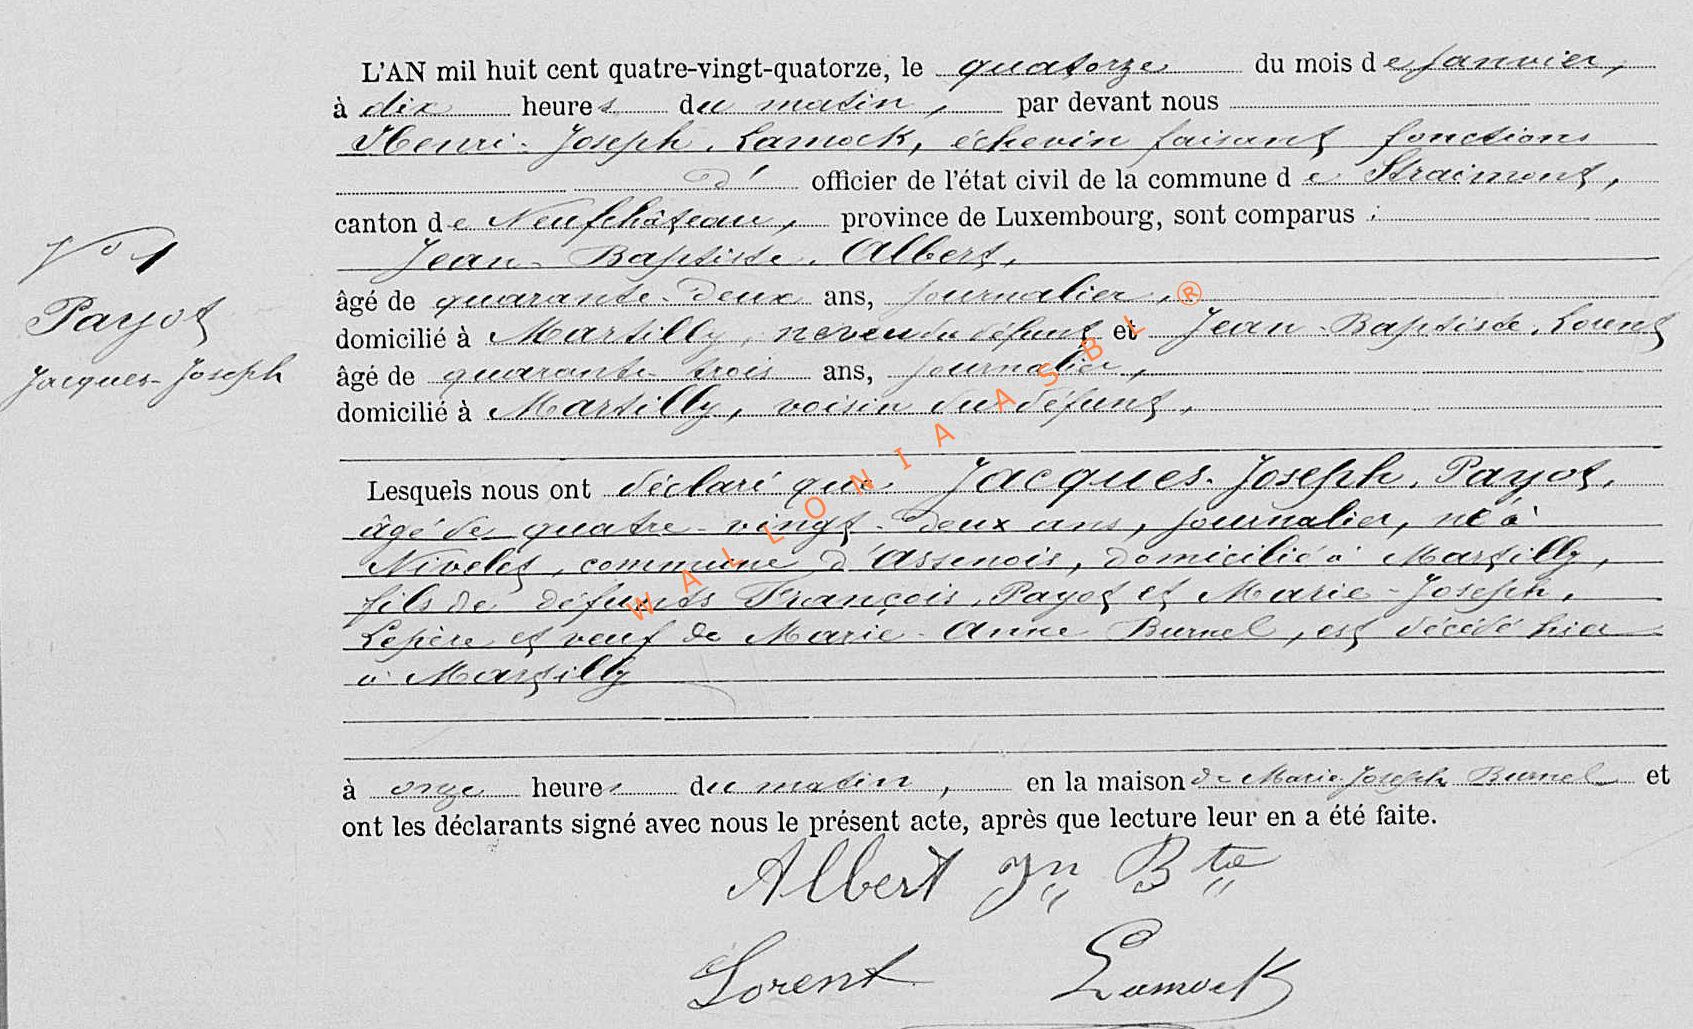 L'AN mil huit cent quatre-vingt-quatorze, le quatorze du mois de Janvier,
à dix heures du matin, par devant nous
Henri-Joseph Lamock, échevin faisant fonctions
d' officier de l'état civil de la commune de Straimont,
canton de Neufchâteau, province de Luxembourg, sont comparus :
Jean-Baptiste Albert,
âgé de quarante-deux ans, journalier,
domicilié à Martilly, neveu du défunt et Jean-Baptiste Lorent
âgé de quarante-trois ans, journalier,
domicilié à Martilly, voisin du défunt,
N° 1
Payot
Jacques-Joseph
Lesquels nous ont déclaré que Jacques-Joseph Payot,
âgé de quatre-vingt-deux ans, journalier, né à
Nivelet, commune d'Assenois, domicilié à Martilly,
fils de défunts François Payot et Marie-Joseph
Lepère et veuf de Marie-Anne Burnel, est décédé hier
à Martilly
à onze heures du matin, en la maison de Marie-Joseph Burnel et
ont les déclarants signé avec nous le présent acte, après que lecture leur en a été faite.
Albert Jn Bte
Lorent Lamock
WALLONIA ASBL ®